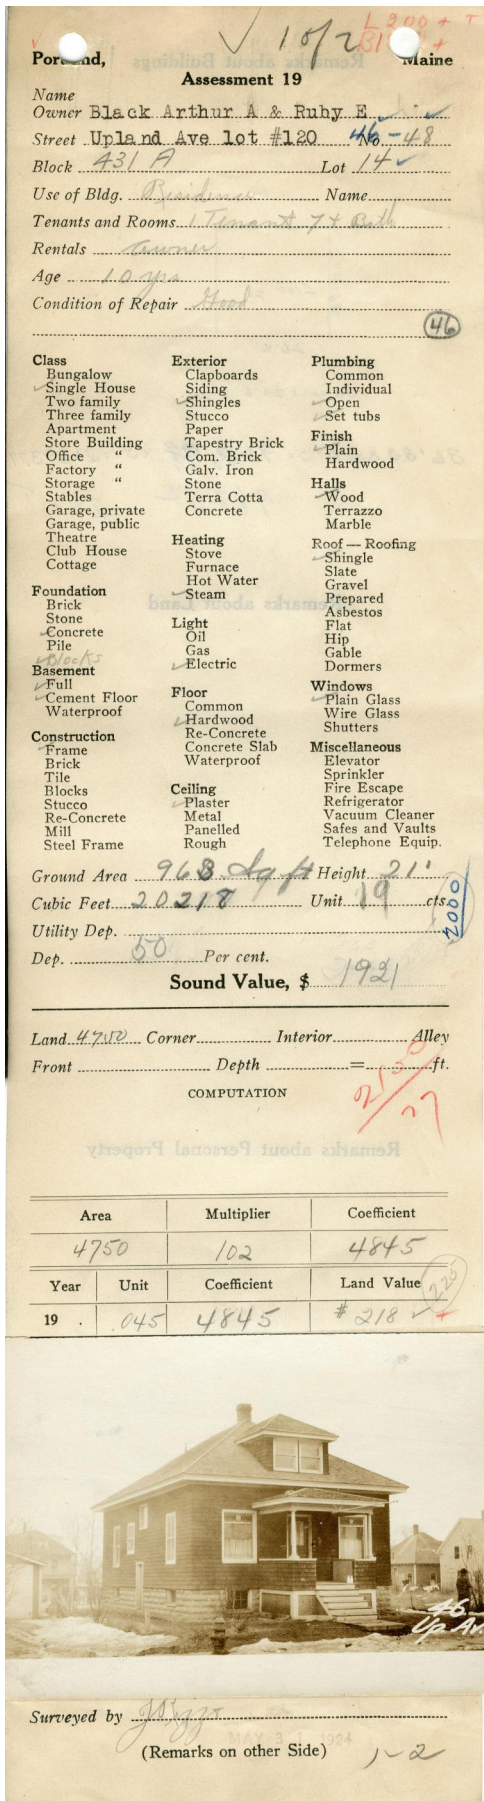 1 of 2
L 200 + T
Portland, Maine
Assessment 19
Name
Owner Black Arthur A & Ruby E
Street Upland Ave lot #120 No 46-48
Block 431 A Lot 14
Use of Bldg. Residence Name
Tenants and Rooms 1 Tenant 7 + Bath
Rentals Owner
Age 10 yrs
Condition of Repair Good
46
Class
Bungalow
Single House
Two family
Three family
Apartment
Store Building
Office "
Factory "
Storage "
Stables
Garage, private
Garage, public
Theatre
Club House
Cottage
Foundation
Brick
Stone
Concrete
Pile
Blocks
Basement
Full
Cement Floor
Waterproof
Construction
Frame
Brick
Tile
Blocks
Stucco
Re-Concrete
Mill
Steel Frame
Exterior
Clapboards
Siding
Shingles
Stucco
Paper
Tapestry Brick
Com. Brick
Galv. Iron
Stone
Terra Cotta
Concrete
Heating
Stove
Furnace
Hot Water
Steam
Light
Oil
Gas
Electric
Floor
Common
Hardwood
Re-Concrete
Concrete Slab
Waterproof
Ceiling
Plaster
Metal
Panelled
Rough
Plumbing
Common
Individual
Open
Set tubs
Finish
Plain
Hardwood
Halls
Wood
Terrazzo
Marble
Roof — Roofing
Shingle
Slate
Gravel
Prepared
Asbestos
Flat
Hip
Gable
Dormers
Windows
Plain Glass
Wire Glass
Shutters
Miscellaneous
Elevator
Sprinkler
Fire Escape
Refrigerator
Vacuum Cleaner
Safes and Vaults
Telephone Equip.
Ground Area 963 Sq ft Height 21'
Cubic Feet 20218 Unit 19 cts.
2000
Utility Dep.
Dep. 50 Per cent.
Sound Value, $ 1921
Land 4750 Corner Interior Alley
Front Depth = ft.
COMPUTATION
27
Area Multiplier Coefficient
4750 102 4845
Year Unit Coefficient Land Value
225
19 . .045 4845 $ 218
46
Up. Av.
Surveyed by
MAY 31 1924
(Remarks on other Side)
1-2